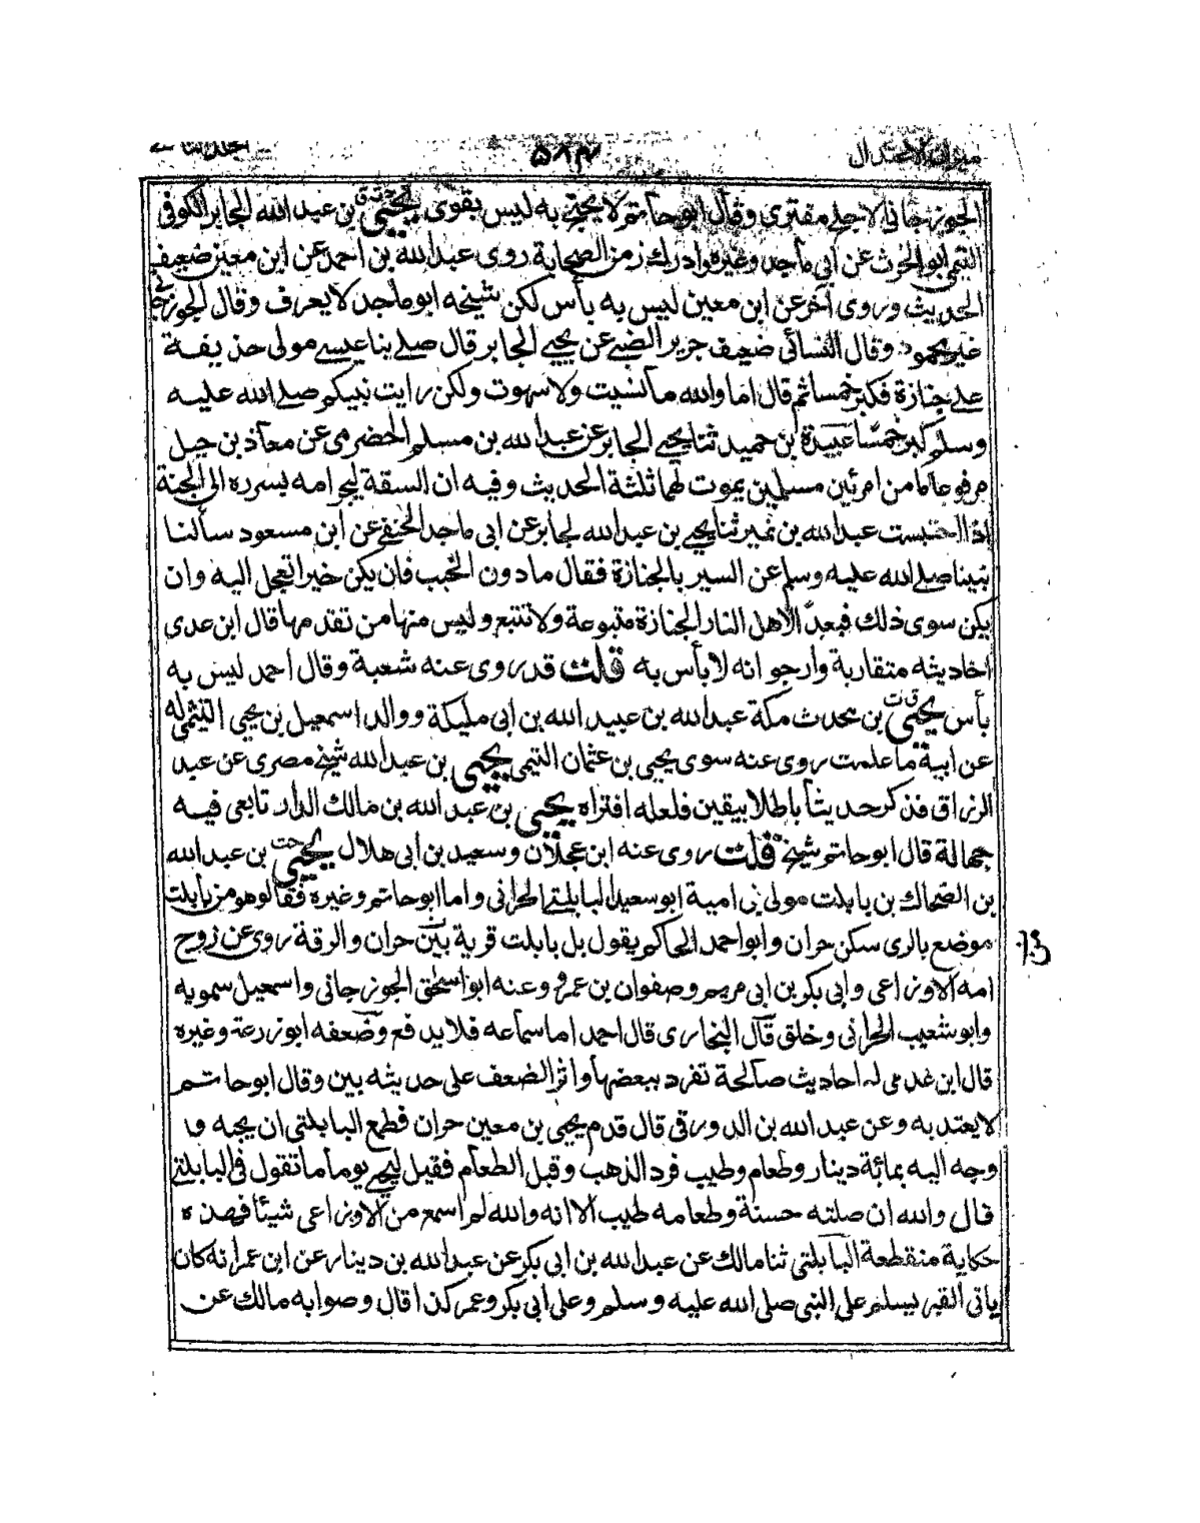 ميزان الاعتدال ٥٨٣
الجوزجاني الاجلح مفترى وقال ابو حاتم لا يحتج به ليس بقوى يحيى بن عبد الله الجابر الكوفى
التيمى ابو الحرث عن ابي ماجد وغيره وادرك من الصحابة روى عبد الله بن احمد عن ابن معين ضعيف
الحديث وروى آخر عن ابن معين ليس به بأس لكن شيخه ابو ماجد لا يعرف وقال الجوزجانى
غير محمود وقال النسائى ضعيف جرير الضبي عن يحيى الجابر قال صلے بنا عيسے مولى حذيفة
علے جنازة فكبر خمسا ثم قال اما والله ما نسيت ولا سهوت ولكن رايت نبيكم صلے الله عليه
وسلم كبر خمسا عبيدة بن حميد ثنا يحيے الجابر عن عبد الله بن مسلم الحضرمى عن معاذ بن جبل
مرفوعا ما من امرئين مسلمين يموت لهما ثلثة الحديث وفيه ان السقط ليجر امه بسرره الى الجنة
اذا احتسبت عبد الله بن نمير ثنا يحيے بن عبد الله لجابر عن ابى ماجد الحنفے عن ابن مسعود سألنا
نبينا صلے الله عليه وسلم عن السير بالجنازة فقال ما دون الخبب فان يكن خيرا تعجل اليه وان
يكن سوى ذلك فبعدًا لاهل النار الجنازة متبوعة ولا تتبع وليس منها من تقدمها قال ابن عدى
احاديثه متقاربة وارجو انه لا بأس به قلت قد روى عنه شعبة وقال احمد ليس به
بأس يحيى بن محدث مكة عبد الله بن عبيد الله بن ابى مليكة ووالد اسمعيل بن يحيى التيمى له
عن ابية ما علمت روى عنه سوى يحيى بن عثمان التيمى يحيى بن عبد الله شيخ مصرى عن عبد
الرزاق فذكر حديثا باطلا بيقين فلعله افتراه يحيى بن عبد الله بن مالك الدار تابعى فيه
جهالة قال ابو حاتم شيخ قلت روى عنه ابن عجلان وسعيد بن ابى هلال يحيى بن عبد الله
بن الضحاك بن بابلت مولى بنى امية ابو سعيد البابلتے الحرانى واما ابو حاتم وغيره فقالوا هو من بابلت
موضع بالرى سكن حران وابو احمد الحاكم يقول بل بابلت قرية بين حران والرقة روى عن زوج
امه الاوزاعى وابى بكر بن ابى مريم وصفوان بن عمرو وعنه ابو اسحٰق الجوزجانى واسمعيل سمويه
وابو شعيب الحرانى وخلق قال البخارى قال احمد اما سماعه فلا يدفع وضعفه ابو زرعة وغيره
قال ابن عدى له احاديث صالحة تفرد ببعضها واثر الضعف على حديثه بين وقال ابو حاتم
لا يعتد به وعن عبد الله بن الدورقى قال قدم يحيى بن معين حران فطمع البابلتى ان يجيه و
وجه اليه بمائة دينار وطعام وطيب فرد الذهب وقبل الطعام فقيل ليحيے يوما ما تقول فى البابلتے
قال والله ان صلته حسنة وطعامه طيب الا انه والله لم اسمع من الاوزاعى شيئا فهذه
حكاية منقطعة البابلتى ثنا مالك عن عبد الله بن ابى بكر عن عبد الله بن دينار عن ابن عمر انه كان
ياتى القبر يسلم على النبى صلى الله عليه وسلم وعلى ابى بكر وعمر كذا قال وصوابه مالك عن